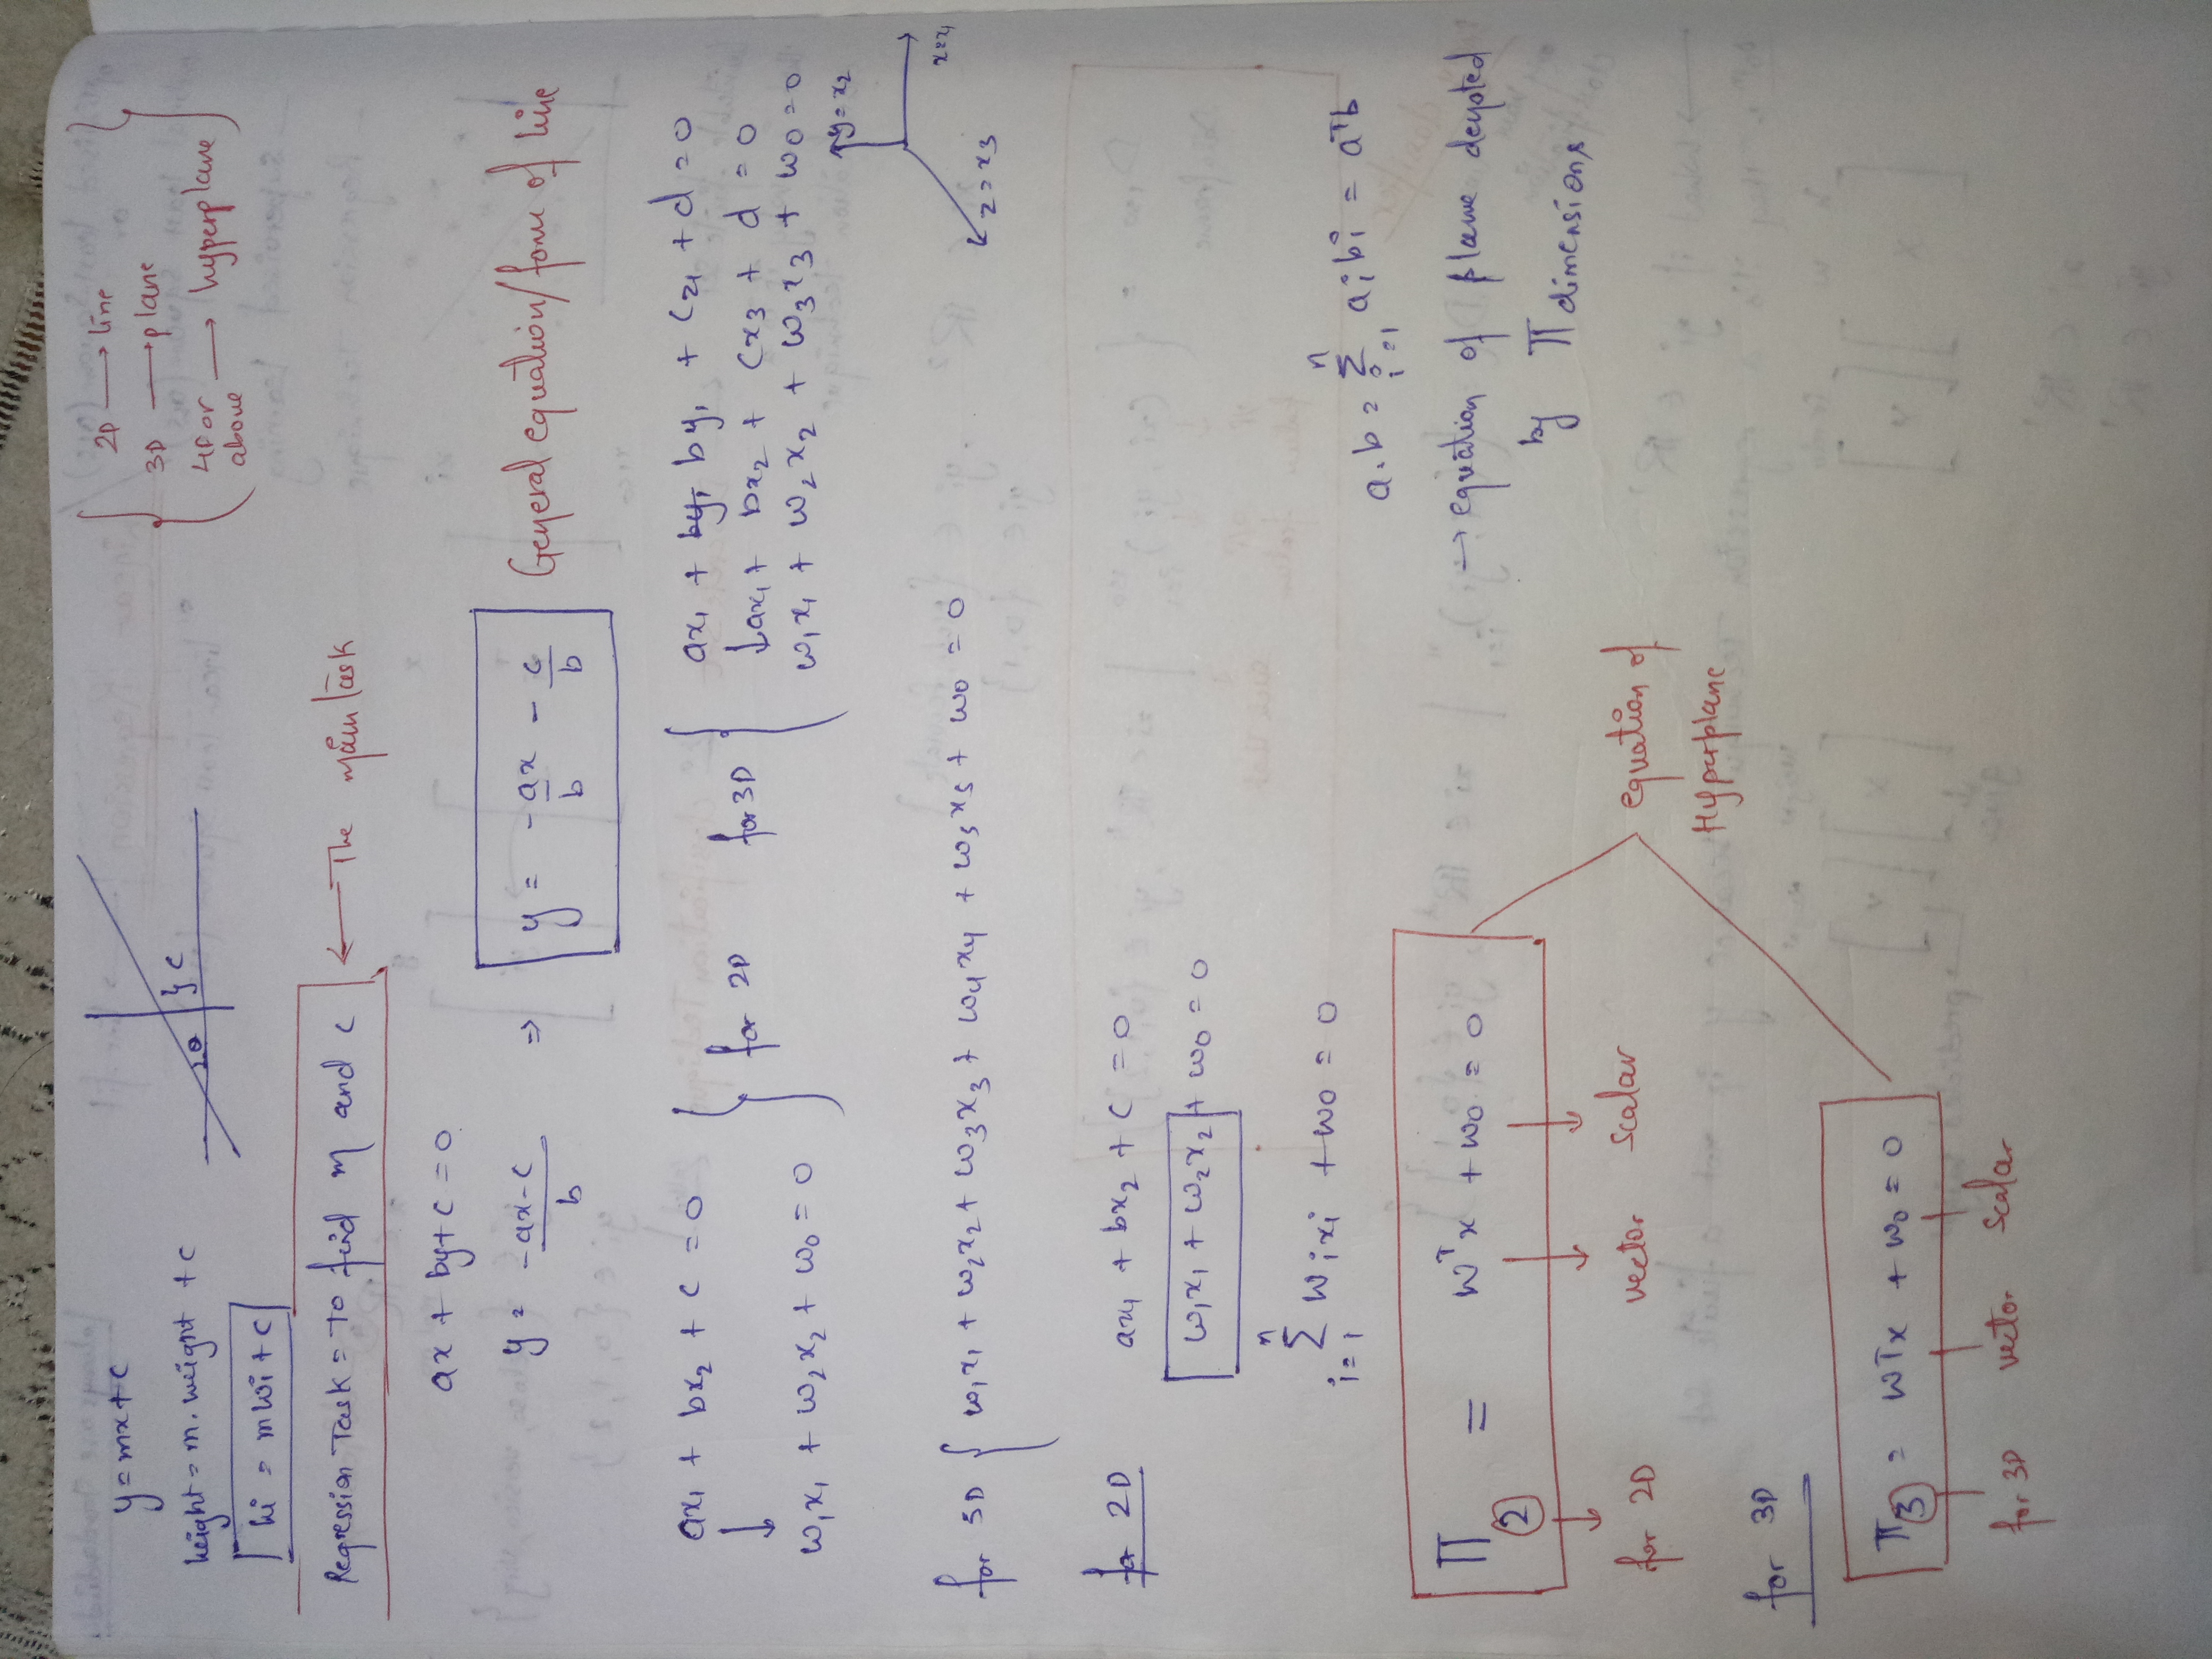 y = mx + c
height = m. weight + c
hi = mwi + c
θ
} c
2D → line
3D → plane
4D or above → hyperplane
Regression Task = To find m and c ← The main task
ax + by + c = 0
y = -ax-c/b ⇒ y = -ax/b - c/b General equation/form of line
ax₁ + bx₂ + c = 0
↓
w₁x₁ + w₂x₂ + w₀ = 0
} for 2D
for 3D {
ax₁ + by₁ by₁ + cz₁ + d = 0
↓ ax₁ + bx₂ + cx₃ + d = 0
w₁x₁ + w₂x₂ + w₃x₃ + w₀ = 0
y = x₂
x = x₁
z = x₃
for 5D { w₁x₁ + w₂x₂ + w₃x₃ + w₄x₄ + w₅x₅ + w₀ = 0
for 2D ax₁ + bx₂ + c = 0
w₁x₁ + w₂x₂ + w₀ = 0
n
Σ wᵢxᵢ + w₀ = 0
i=1
a.b = Σⁿᵢ₌₁ aᵢbᵢ = aᵀb
π₂ = wᵀx + w₀ = 0
→ equation of plane denoted
by π dimensions
for 2D vector scalar
equation of
Hyperplane
for 3D
π₃ = wᵀx + w₀ = 0
for 3D vector scalar